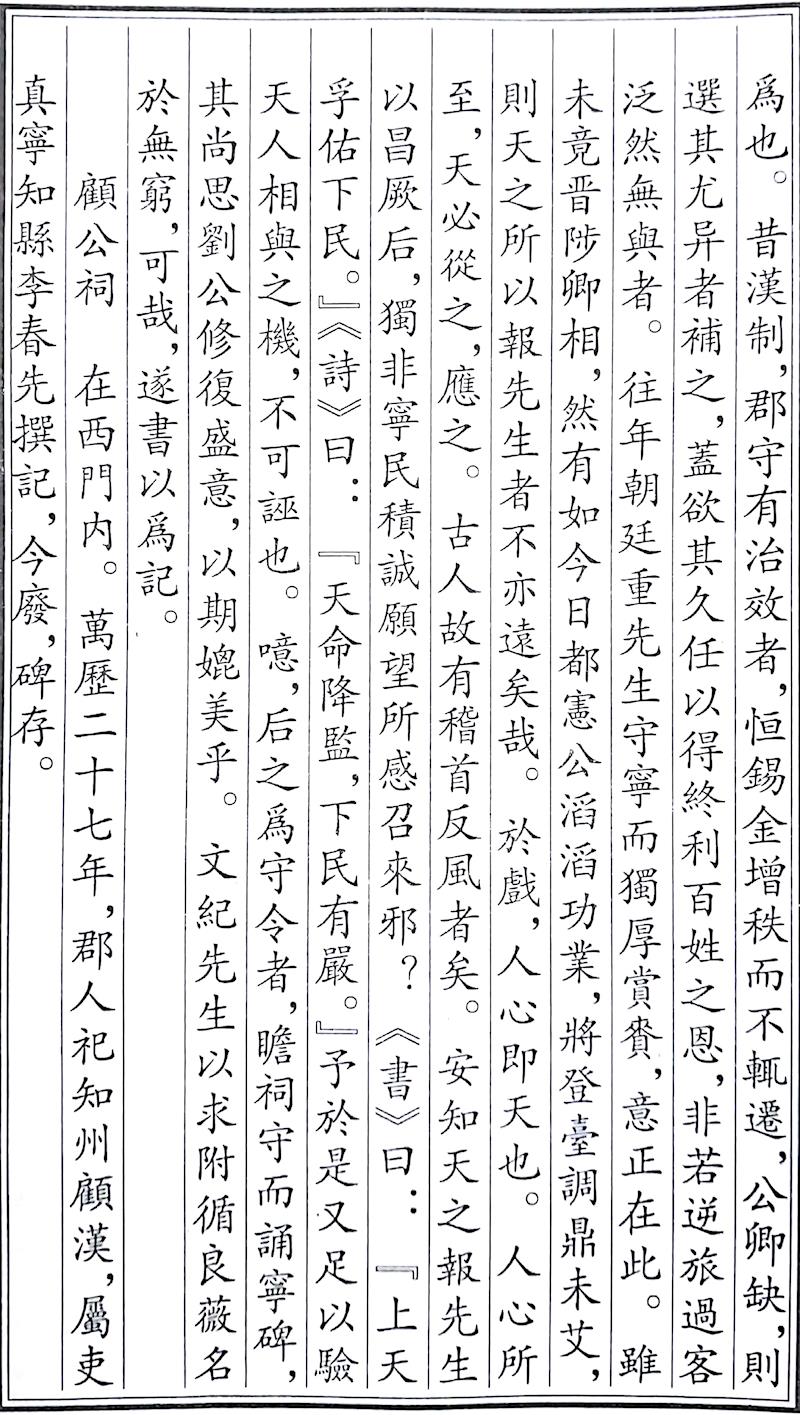 爲也。昔漢制，郡守有治效者，恒錫金增秩而不輒遷，公卿缺，則
選其尤异者補之，蓋欲其久任以得終利百姓之恩，非若逆旅過客
泛然無與者。往年朝廷重先生守寧而獨厚賞賚，意正在此。雖
未竟晋陟卿相，然有如今日都憲公滔滔功業，將登臺調鼎未艾，
則天之所以報先生者不亦遠矣哉。於戲，人心即天也。人心所
至，天必從之，應之。古人故有稽首反風者矣。安知天之報先生
以昌厥后，獨非寧民積誠願望所感召來邪？《書》曰：『上天
孚佑下民。』《詩》曰：『天命降監，下民有嚴。』予於是又足以驗
天人相與之機，不可誣也。噫，后之爲守令者，瞻祠守而誦寧碑，
其尚思劉公修復盛意，以期媲美乎。文紀先生以求附循良薇名
於無窮，可哉，遂書以爲記。
顧公祠　在西門内。萬歷二十七年，郡人祀知州顧漢，屬吏
真寧知縣李春先撰記，今廢，碑存。